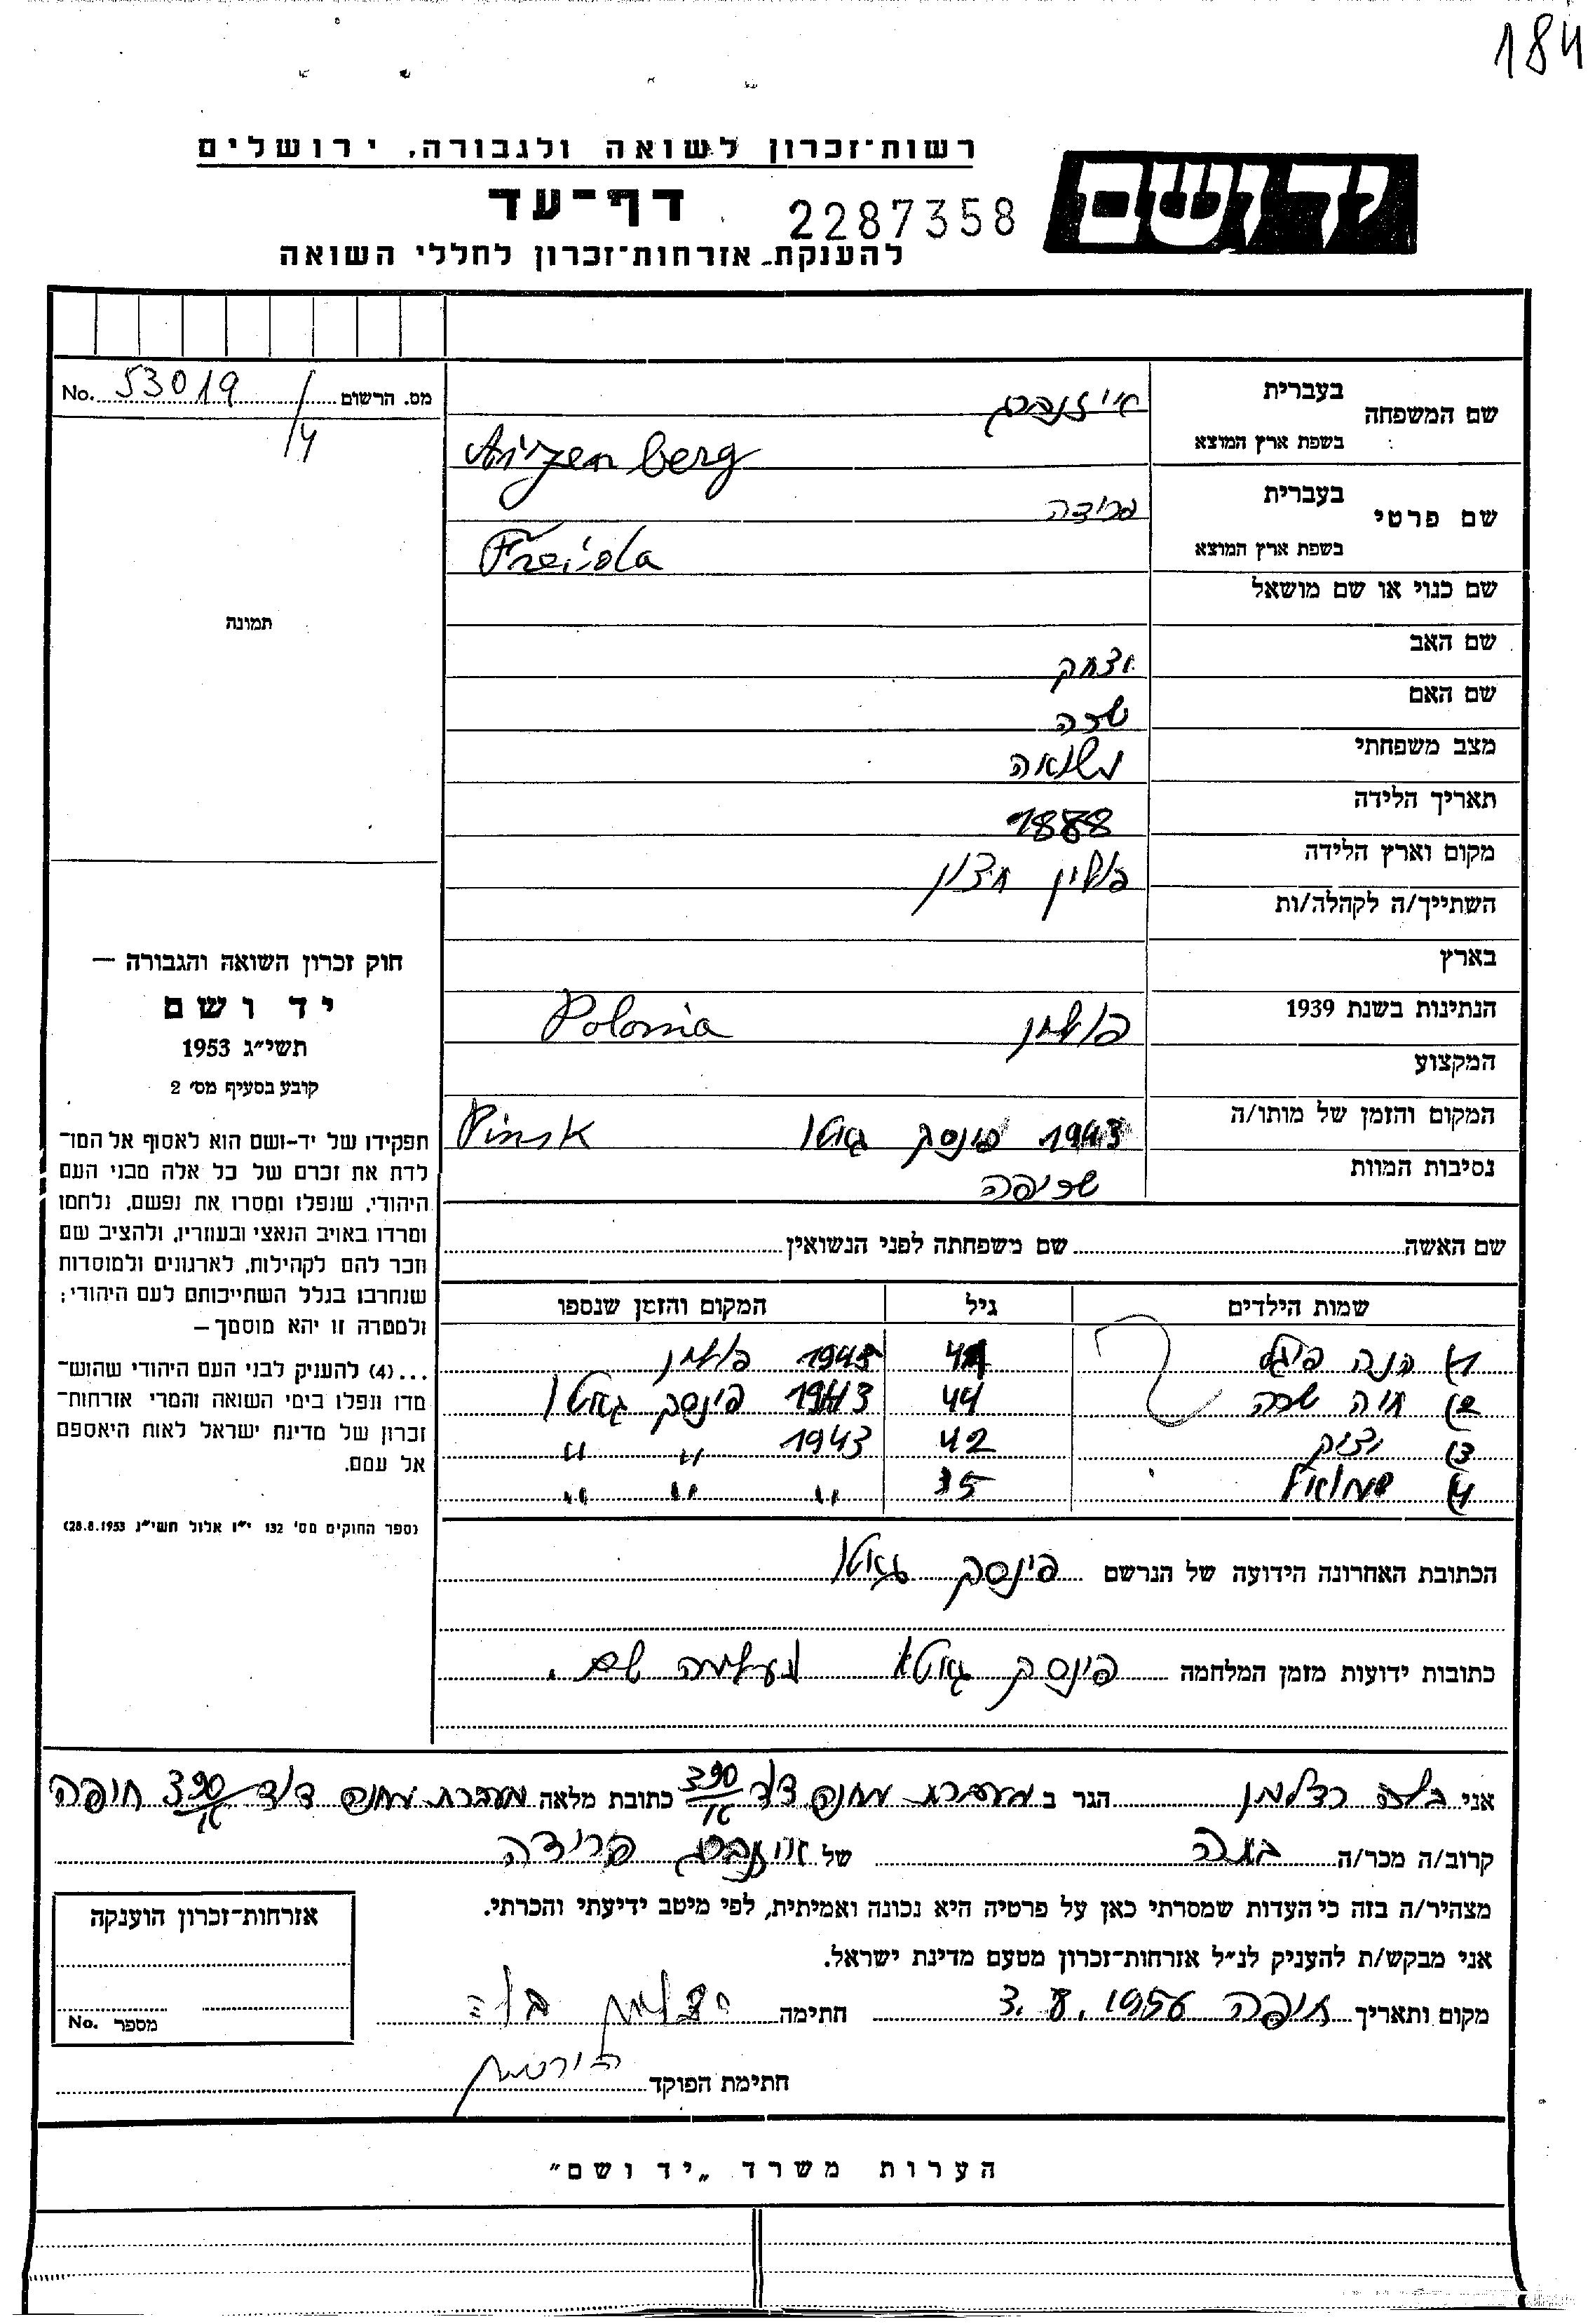 184
רשות־זכרון לשואה ולגבורה, ירושלים
יד ושם
דף־עד
2287358
להענקת אזרחות־זכרון לחללי השואה
מס. הרשום 53019/4 No.
שם המשפחה בעברית איזנברג
בשפת ארץ המוצא Aizenberg
שם פרטי בעברית פרידה
בשפת ארץ המוצא Freida
שם כנוי או שם מושאל
שם האב יצחק
שם האם שרה
מצב משפחתי נשואה
תאריך הלידה 1888
מקום וארץ הלידה פולין
השתייך/ה לקהלה/ות
בארץ
הנתינות בשנת 1939 פולין Polonia
המקצוע
המקום והזמן של מותו/ה 1943 פינסק גיטו Pinsk
נסיבות המוות שריפה
שם האשה שם משפחתה לפני הנשואין
שמות הילדים גיל המקום והזמן שנספו
1) חנה פייגל 1943 פולין
2) חיה שרה 44 1943 פינסק גיטו
3) 42 1943 " "
4) שמואל 35 " " "
הכתובת האחרונה הידועה של הנרשם פינסק גיטו
כתובות ידועות מזמן המלחמה פינסק גיטו נעלמה שם.
תמונה
חוק זכרון השואה והגבורה —
יד ושם
תשי״ג 1953
קובע בסעיף מס׳ 2
תפקידו של יד-ושם הוא לאסוף אל המו־
לדת את זכרם של כל אלה מבני העם
היהודי, שנפלו ומסרו את נפשם, נלחמו
ומרדו באויב הנאצי ובעוזריו, ולהציב שם
וזכר להם לקהילות, לארגונים ולמוסדות
שנחרבו בגלל השתייכותם לעם היהודי;
ולמטרה זו יהא מוסמך —
...(4) להעניק לבני העם היהודי שהוש־
מדו ונפלו בימי השואה והמרי אזרחות־
זכרון של מדינת ישראל לאות היאספם
אל עמם.
(ספר החוקים מס׳ 132 י״ז אלול תשי״ג 28.8.1953)
אני הגר ב מעברת מחנה דוד 390 כתובת מלאה מעברת מחנה דוד 390 חיפה
קרוב/ה מכר/ה של איזנברג פרידה
מצהיר/ה בזה כי העדות שמסרתי כאן על פרטיה היא נכונה ואמיתית, לפי מיטב ידיעתי והכרתי.
אני מבקש/ת להעניק לנ״ל אזרחות־זכרון מטעם מדינת ישראל.
מקום ותאריך חיפה 1956 חתימה
חתימת הפוקד
אזרחות־זכרון הוענקה
מספר No.
הערות משרד „יד ושם״